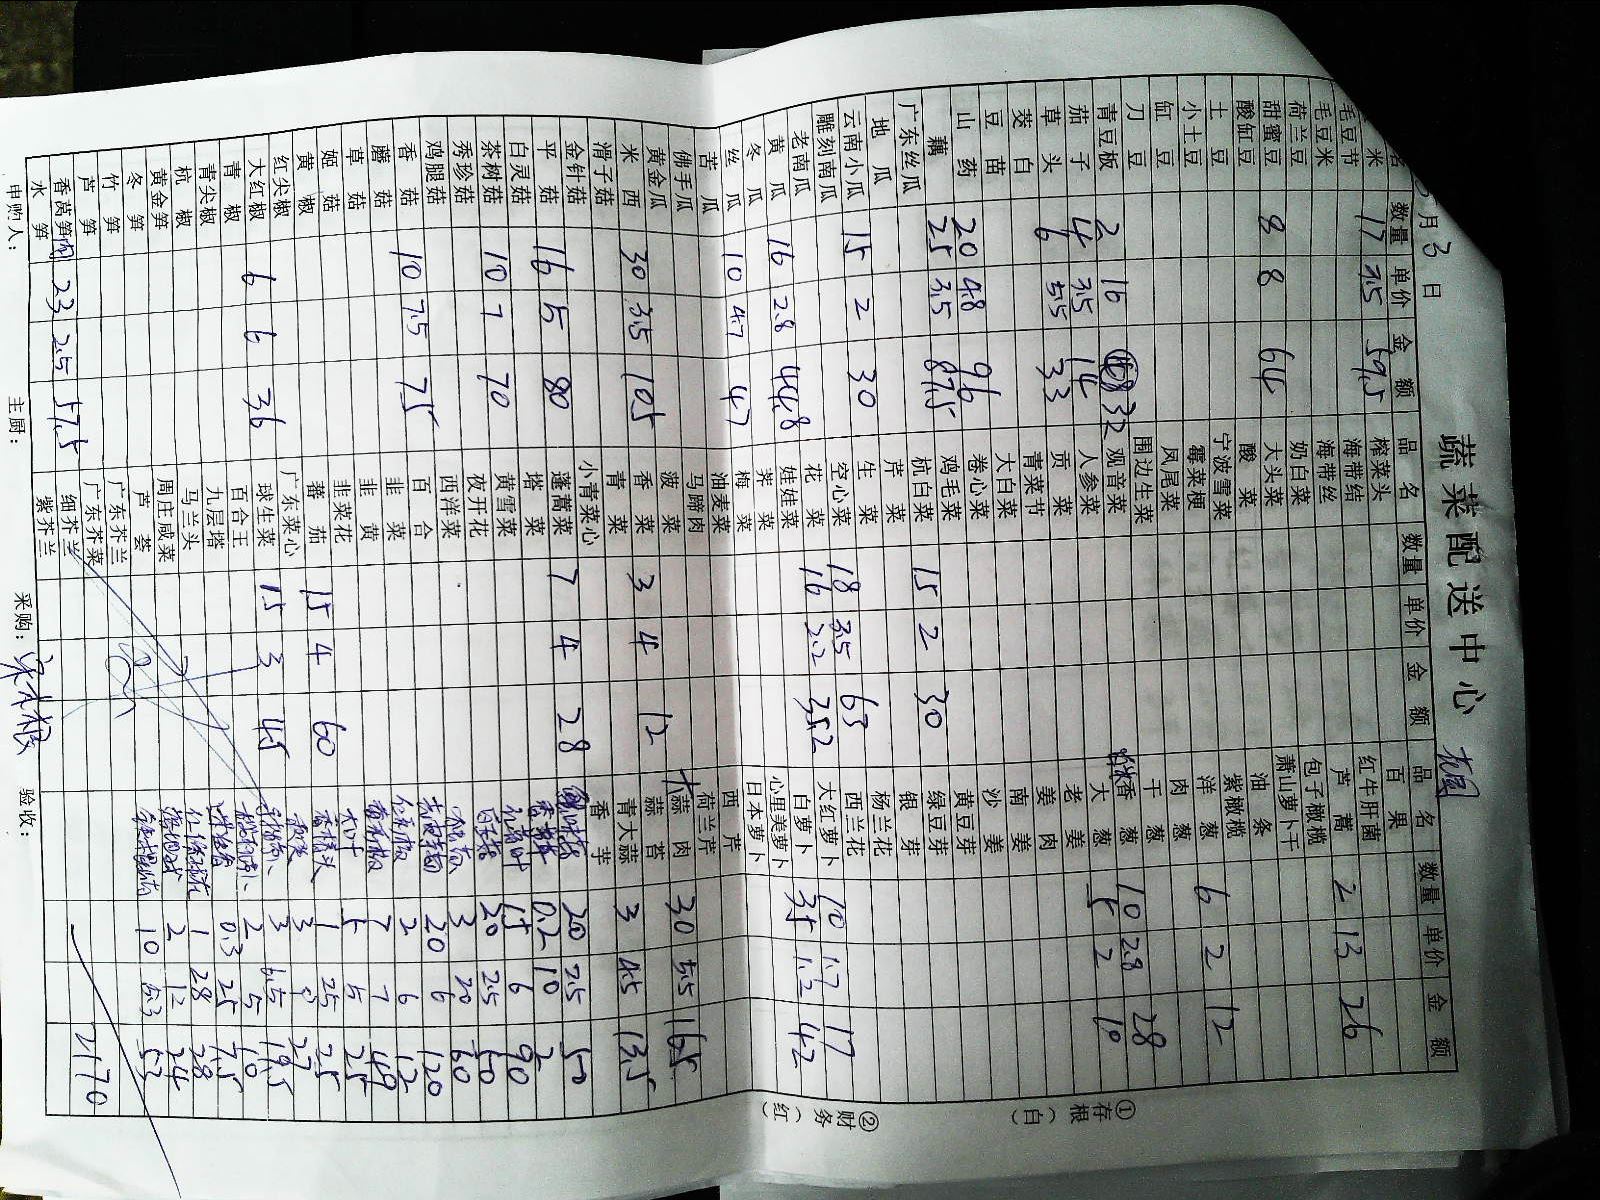 蔬菜配送中心
5月3日
品名 数量 单价 金额 品名 数量 单价 金额 品名 数量 单价 金额
米 17 3.5 59.5 榨菜头 百果
毛豆节 海带结 红牛肝菌
毛豆米 海带丝 芦蒿 2 13 26
荷兰豆 奶白菜 包子橄榄
甜蜜豆 8 8 64 大头菜 萧山萝卜干
酸缸豆 酸菜 油条
土豆 宁波雪菜 紫橄榄
小土豆 霉菜梗 洋葱 6 2 12
缸豆 凤尾菜 肉葱
刀豆 围边生菜 干葱
青豆板 2 16 32 观音菜 香葱 10 2.8 28
茄子 4 3.5 14 人参菜 大葱 5 2 10
草头 6 5.5 33 贡菜 老姜
茭白 青菜节 姜肉
豆苗 大白菜 南姜
山药 20 4.8 96 卷心菜 沙姜
藕 25 3.5 87.5 鸡毛菜 黄豆芽
广东丝瓜 杭白菜 15 2 30 绿豆芽
地瓜 芹菜 银芽
云南小瓜 15 2 30 生菜 杨兰花
雕刻南瓜 空心菜 18 3.5 63 西兰花
老南瓜 花菜 16 2.2 35.2 大红萝卜 10 1.7 17
黄瓜 16 2.8 44.8 娃娃菜 白萝卜 35 1.2 42
冬瓜 荠菜 心里美萝卜
丝瓜 10 4.7 47 梅菜 日本萝卜
苦瓜 油麦菜 西芹
佛手瓜 马蹄肉 荷兰芹
黄金瓜 菠菜 大蒜肉 30 5.5 165
米西 30 3.5 105 香菜 3 4 12 蒜苔
滑子菇 青菜 青大蒜 3 4.5 13.5
金针菇 小青菜心 香芋
平菇 16 5 80 蓬蒿菜 7 4 28 20 2.5 50
白灵菇 塔菜 0.2 10 2
茶树菇 10 7 70 黄雪菜 15 6 90
秀珍菇 夜开花 20 2.5 50
鸡腿菇 西洋菜 3 20 60
香菇 10 7.5 75 百合 20 6 120
蘑菇 韭菜 2 6 12
草菇 韭黄 7 7 49
姬菇 韭菜花 5 5 25
黄椒 蕃茄 15 4 60 1 25 25
红尖椒 广东菜心 3
大红椒 6 6 36 球生菜 15 3 45 3 6.5 19.5
青椒 百合王 2 5 10
青尖椒 九层塔 0.3 25 7.5
杭椒 马兰头 1 28 28
黄金笋 周庄咸菜 2 12 24
冬笋 芦荟 10 5.3 53
竹笋 广东芥兰
芦笋 广东芥菜 2170
香莴笋肉 23 2.5 57.5 细芥兰
水笋 紫芥兰
申购人： 主厨： 采购： 验收：
①存根（白）
②财务（红）